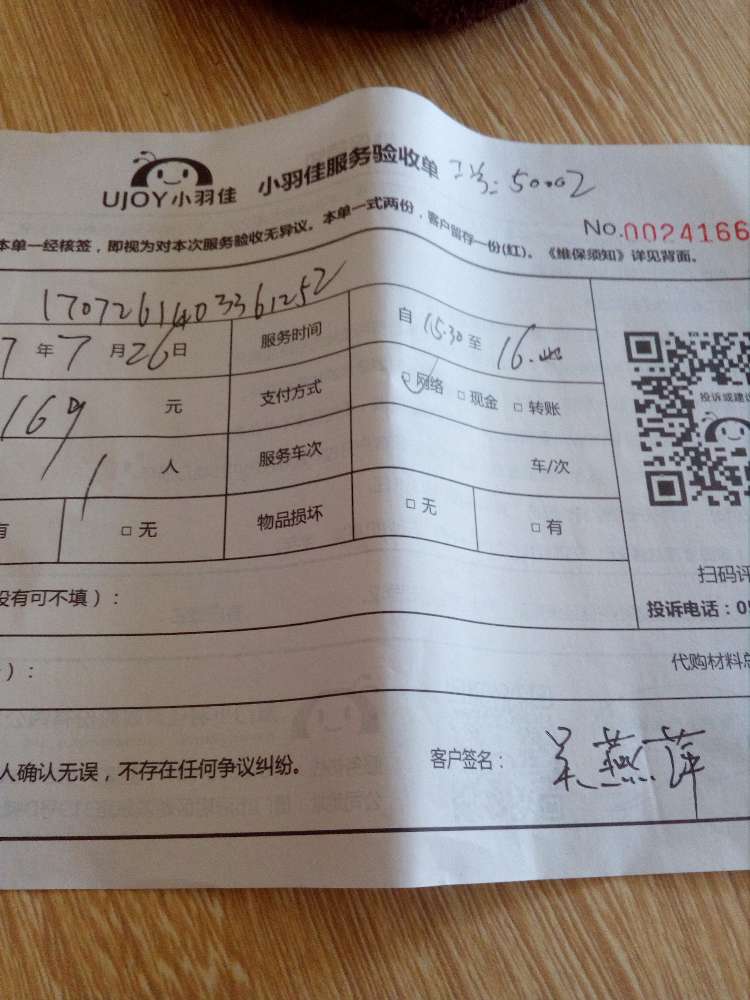 UJOY小羽佳 小羽佳服务验收单 工号:50002
No.0024166
本单一经核签，即视为对本次服务验收无异议。本单一式两份，客户留存一份(红)。《维保须知》详见背面。
1707261403361252
7 年 7 月 26 日 服务时间 自 15.30 至 16.
169 元 支付方式 网络 □ 现金 □ 转账
投诉或建议
1 人 服务车次 车/次
有 □ 无 物品损坏 □ 无 □ 有
扫码评
没有可不填）：
投诉电话：05
）：
代购材料总
人确认无误，不存在任何争议纠纷。 客户签名： 吴燕萍